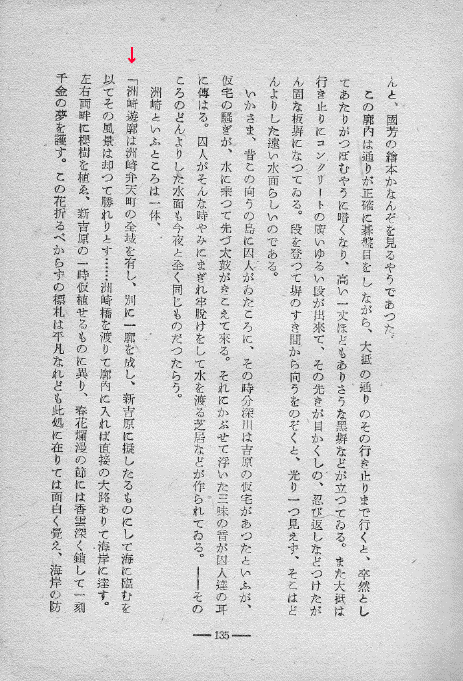 んと、國芳の繪本かなんぞを見るやうであつた
この廓内は通りが正確に碁盤目をしながら、大抵の通りのその行き止りまで行くと、卒然とし
てあたりがつぼむやうに暗くなり、高い一丈ほどもありさうな黑塀などが立つてゐる。また大抵は
行き止りにコンクリートの廣いゆるい段が出來て、その先きが目かくしの、忍び返しなどつけたが
ん固な板塀になつてゐる。段を登つて塀のすき間から向うをのぞくと、光り一つ見えず、そこはど
んよりした遠い水面らしいのである。
いかさま、昔この向うの島に囚人がゐたころに、その時分深川は吉原の仮宅があつたといふが、
仮宅の騷ぎが、水に乘つて先づ太鼓がきこえて來る。それにかぶせて浮いた三味の音が囚人達の耳
に傳はる。囚人がそんな時やみにまぎれ牢脱けをして水を渡る芝居などが作られてゐる。――その
ころのどんよりした水面も今夜と全く同じものだつたらう。
洲崎といふところは一体、
「洲崎遊廓は洲崎弁天町の全域を有し、別に一廓を成し、新吉原に擬したるものにして海に臨むを
以てその風景は却つて勝れりとす……洲崎橋を渡りて廓内に入れば直接の大路ありて海岸に達す。
左右両畔に櫻樹を植ゑ、新吉原の一時仮植せるものに異り、春花爛漫の節には香雲深く鎖して一刻
千金の夢を護す。この花折るべからずの標札は平凡なれども此処に在りては面白く覺え、海岸の防
―― 135 ――